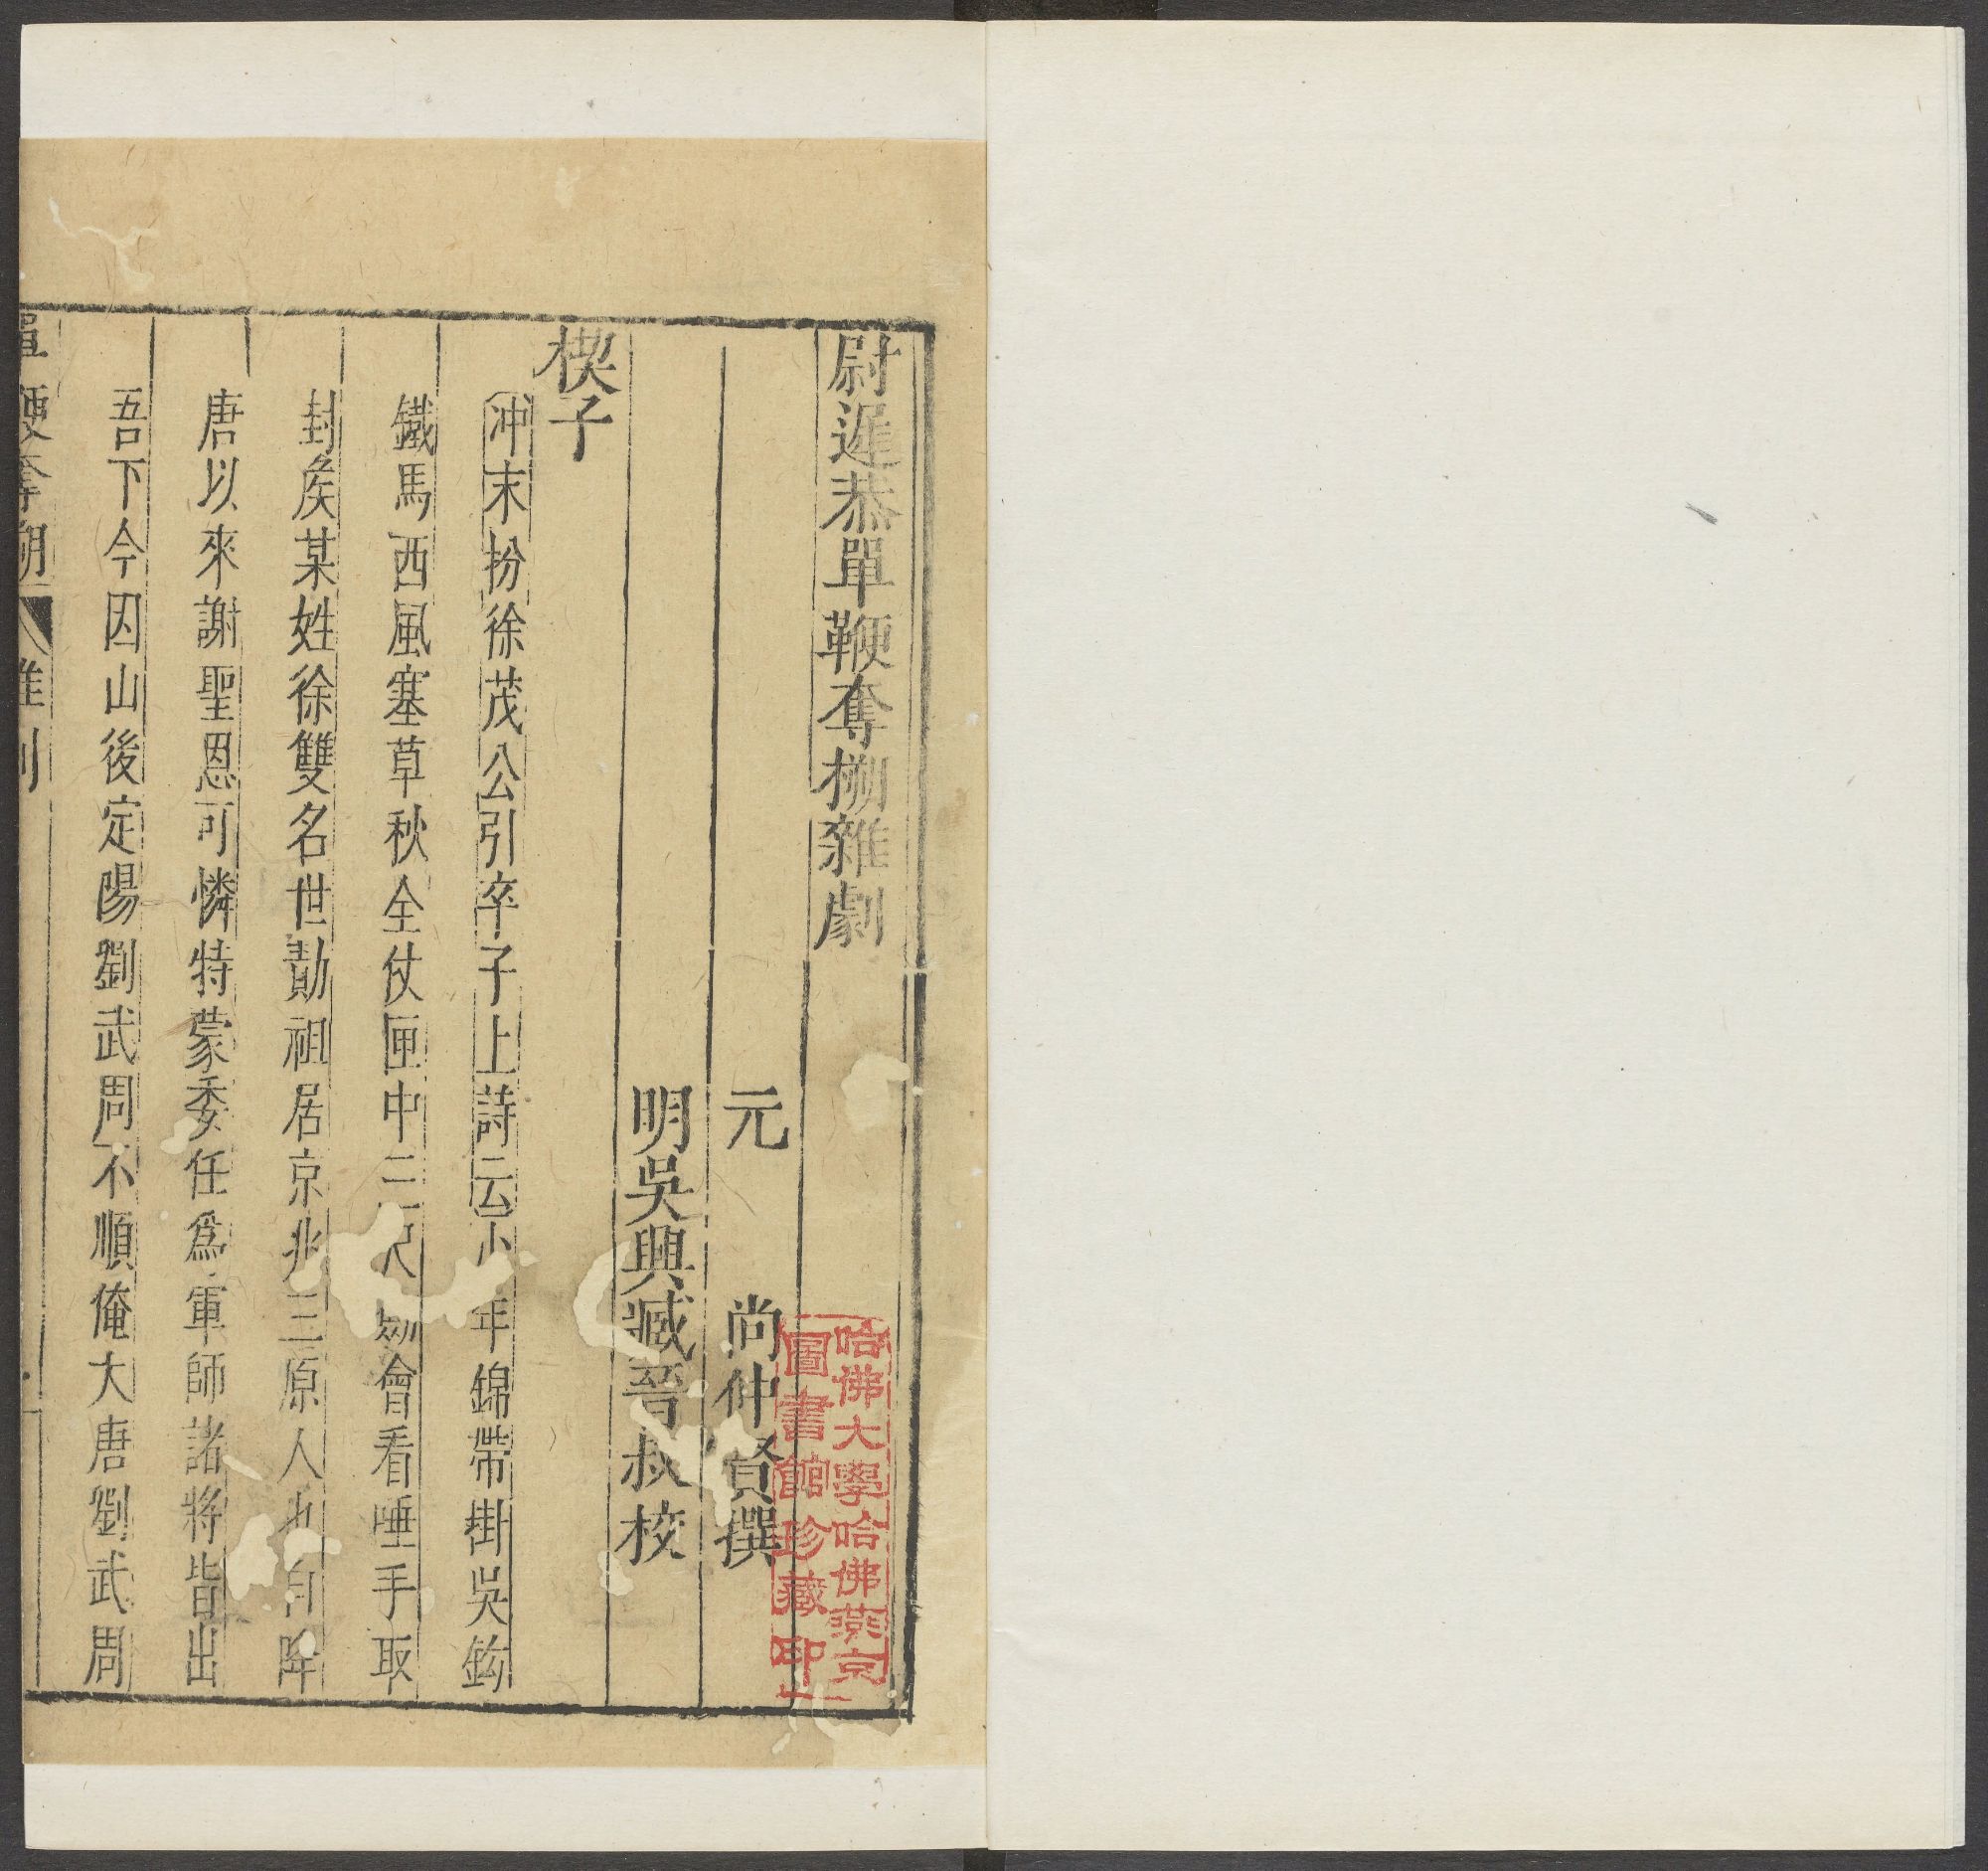 尉遲恭單鞭奪槊雜劇
元 尚仲賢撰
明吳興臧晉叔校
楔子
冲末扮徐茂公引卒子上詩云少年錦帶掛吳鈎
鐵馬西風塞草秋全仗匣中三尺劒會看唾手取
封矦某姓徐雙名世勣祖居京兆三原人也自降
唐以來謝聖恩可憐特蒙委任爲軍師諸將皆出
吾下今因山後定陽劉武周不順俺大唐劉武周
哈佛大學哈佛燕京
圖書館珍藏印